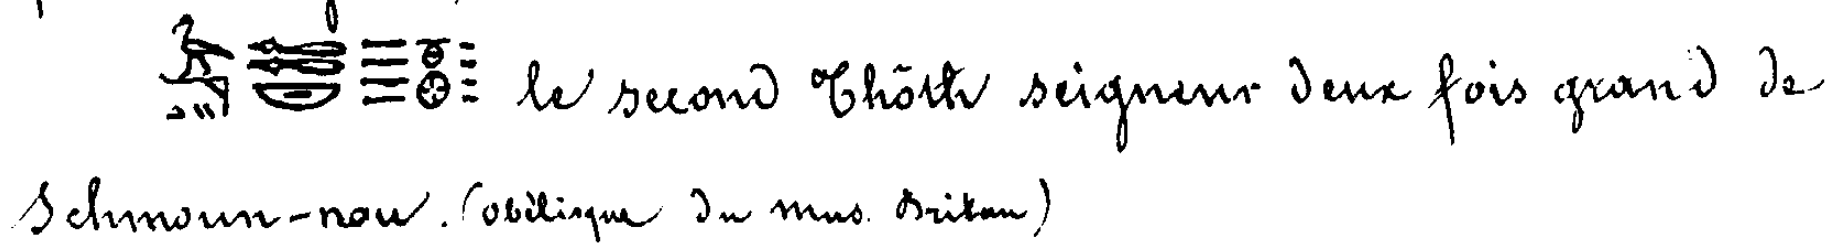 le second Thôth seigneur deux fois grand de
Schmoun-nou. (obélisque du mus. Britan)